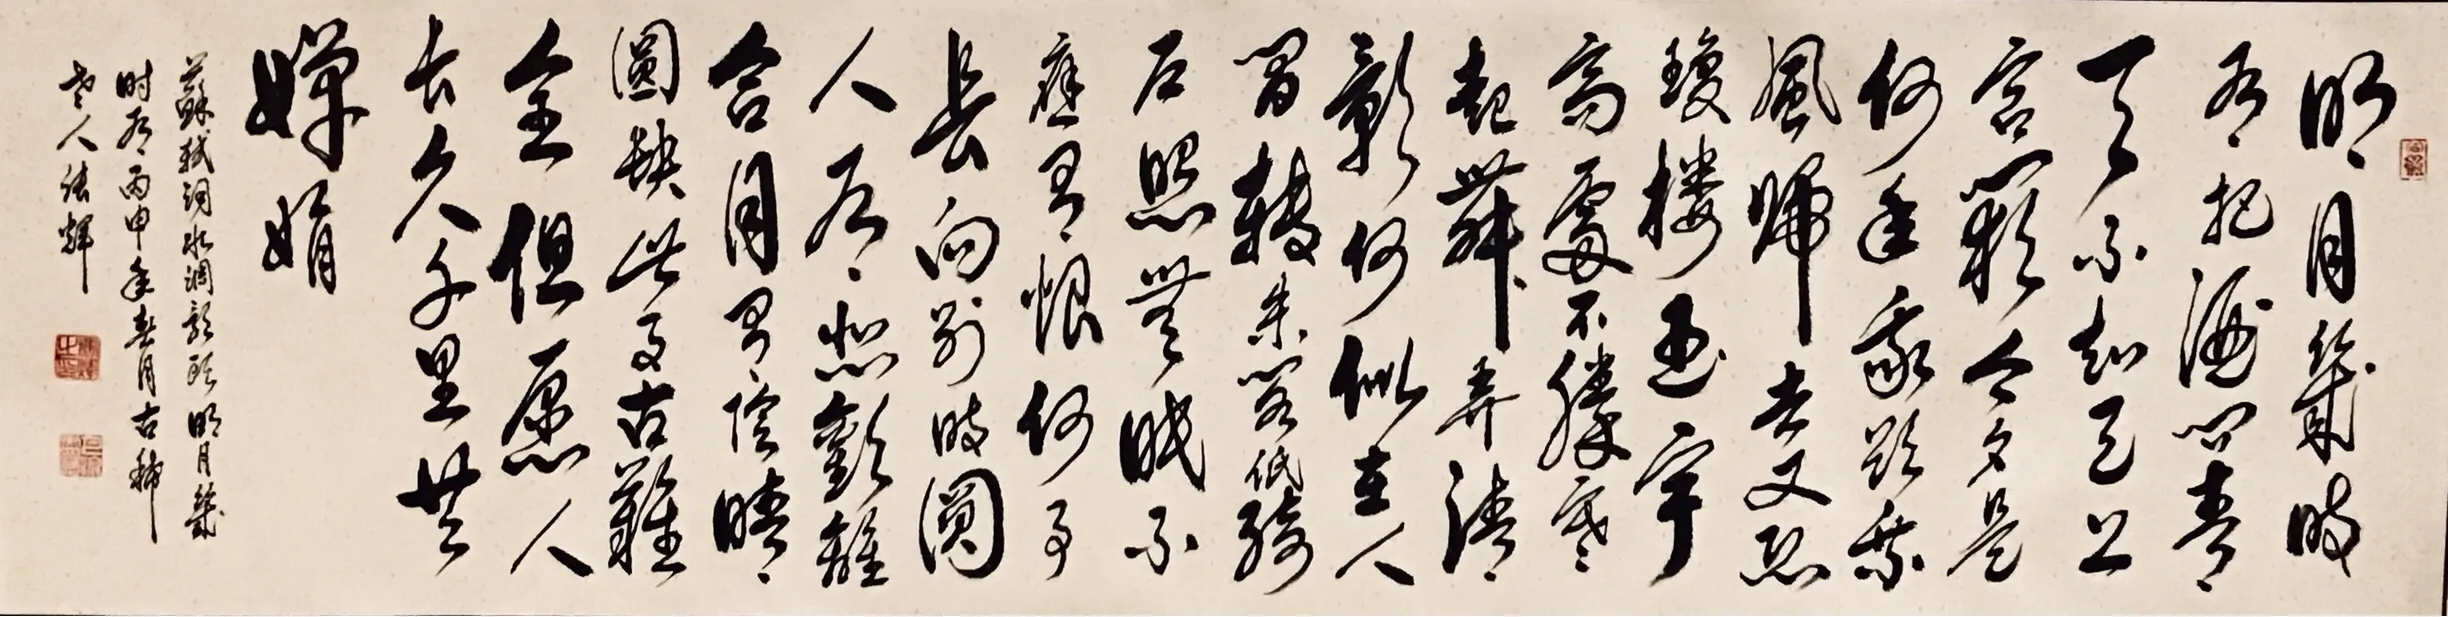 明月幾時
有把酒問青
天不知天上
宫闕今夕是
何年我欲乘
風歸去又恐
瓊楼玉宇
高處不勝寒
起舞弄清
影何似在人
間轉朱閣低綺
户照無眠不
應有恨何事
長向别時圓
人有悲歡離
合月有陰晴
圓缺此事古難
全但愿人
长久千里共
嬋娟
蘇軾词水调歌頭明月幾
时有丙申年春月古稀
老人 辉